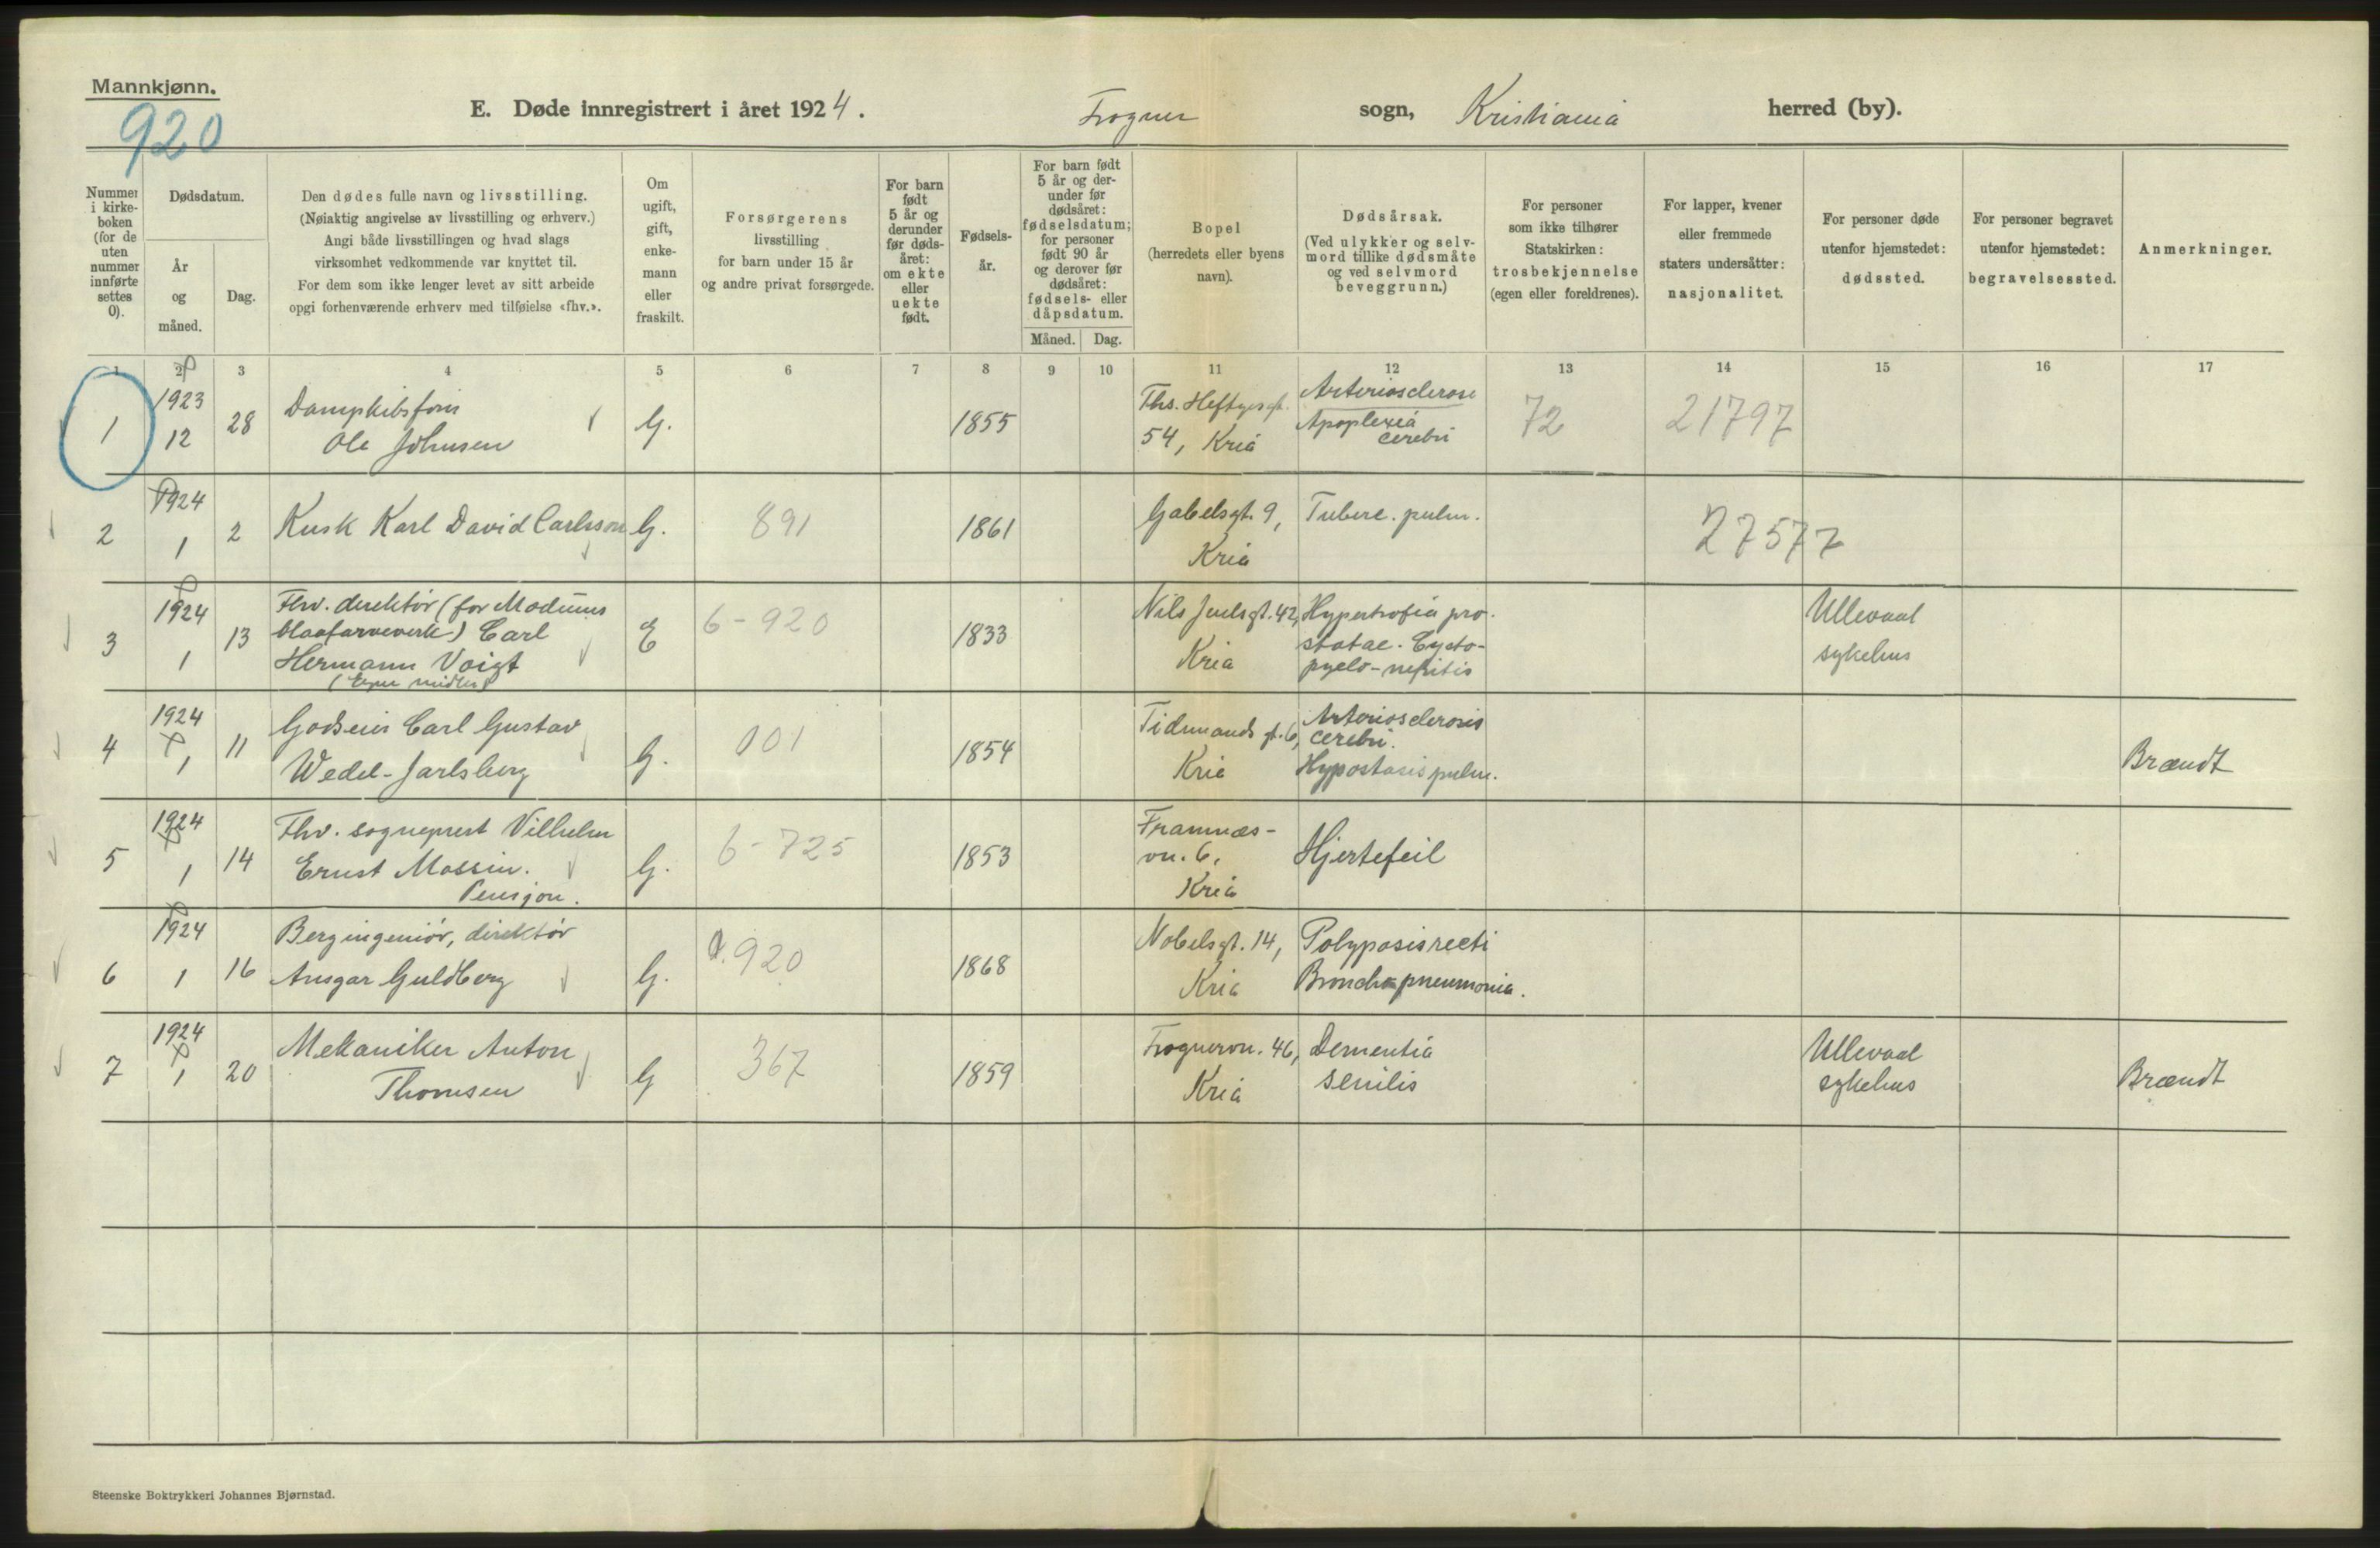 Mannkjønn.
920
E. Døde innregistrert i året 1924.
Frogner sogn, Kristiania herred (by).
Nummer i kirkeboken (for de uten nummer innførte settes 0).
Dødsdatum.
År og måned.
Dag.
Den dødes fulle navn og livsstilling.
(Nøiaktig angivelse av livsstilling og erhverv.)
Angi både livsstillingen og hvad slags
virksomhet vedkommende var knyttet til.
For dem som ikke lenger levet av sitt arbeide
opgi forhenværende erhverv med tilføielse «fhv.».
Om ugift, gift, enkemann eller fraskilt.
Forsørgerens
livsstilling
for barn under 15 år
og andre privat forsørgede.
For barn født 5 år og derunder før dødsåret: om ekte eller uekte født.
Fødselsår.
For barn født 5 år og derunder før dødsåret: fødselsdatum; for personer født 90 år og derover før dødsåret: fødsels- eller dåpsdatum.
Måned. Dag.
Bopel
(herredets eller byens
navn).
Dødsårsak.
(Ved ulykker og selvmord tillike dødsmåte og ved selvmord beveggrunn.)
For personer
som ikke tilhører
Statskirken:
trosbekjennelse
(egen eller foreldrenes).
For lapper, kvener
eller fremmede
staters undersåtter:
nasjonalitet.
For personer døde
utenfor hjemstedet:
dødssted.
For personer begravet
utenfor hjemstedet:
begravelsessted.
Anmerkninger.
1 2 3 4 5 6 7 8 9 10 11 12 13 14 15 16 17
1 1923 12 28 Ole Johnsen G. 1855 Ths. Heftyesgt. 54, Kria Arteriosclerose Apoplexia cerebri 72 21797
2 1924 1 2 Kusk Karl David Carlsson G. 891 1861 Gabelsgt. 9, Kria Tuberc. pulm. 27577
3 1924 1 13 Fhv. direktør (for Modums
blaafarveverk) Carl
Hermann Voigt
(Egne midler)
E 6-920 1833 Nils Juelsgt. 42, Kria
Hypertrofia pro-
statae. Cysto-
pyelo-nefritis
Ullevaal
sykehus
4 1924 1 11 Godseier Carl Gustav
Wedel-Jarlsberg
G. 001 1854 Tidemands gt. 6, Kria
Arteriosclerosis
cerebri.
Hypostasis pulm.
Brændt
5 1924 1 14 Fhv. sogneprest Vilhelm
Ernst Massin.
Pensjon.
G. 6-725 1853 Framnæs-
vn. 6,
Kria
Hjertefeil
6 1924 1 16 Bergingeniør, direktør
Ansgar Guldberg
G. 920 1868 Nobelsgt. 14,
Kria
Polyposis recti
Bronchopneumonia.
7 1924 1 20 Mekaniker Anton
Thomsen
G 367 1859 Frognervn. 46,
Kria
Dementia
senilis
Ullevaal
sykehus
Brændt
Steenske Boktrykkeri Johannes Bjørnstad.